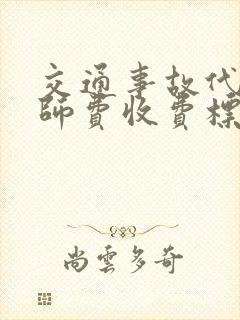 交通事故代
師費收費標
尚雲多奇